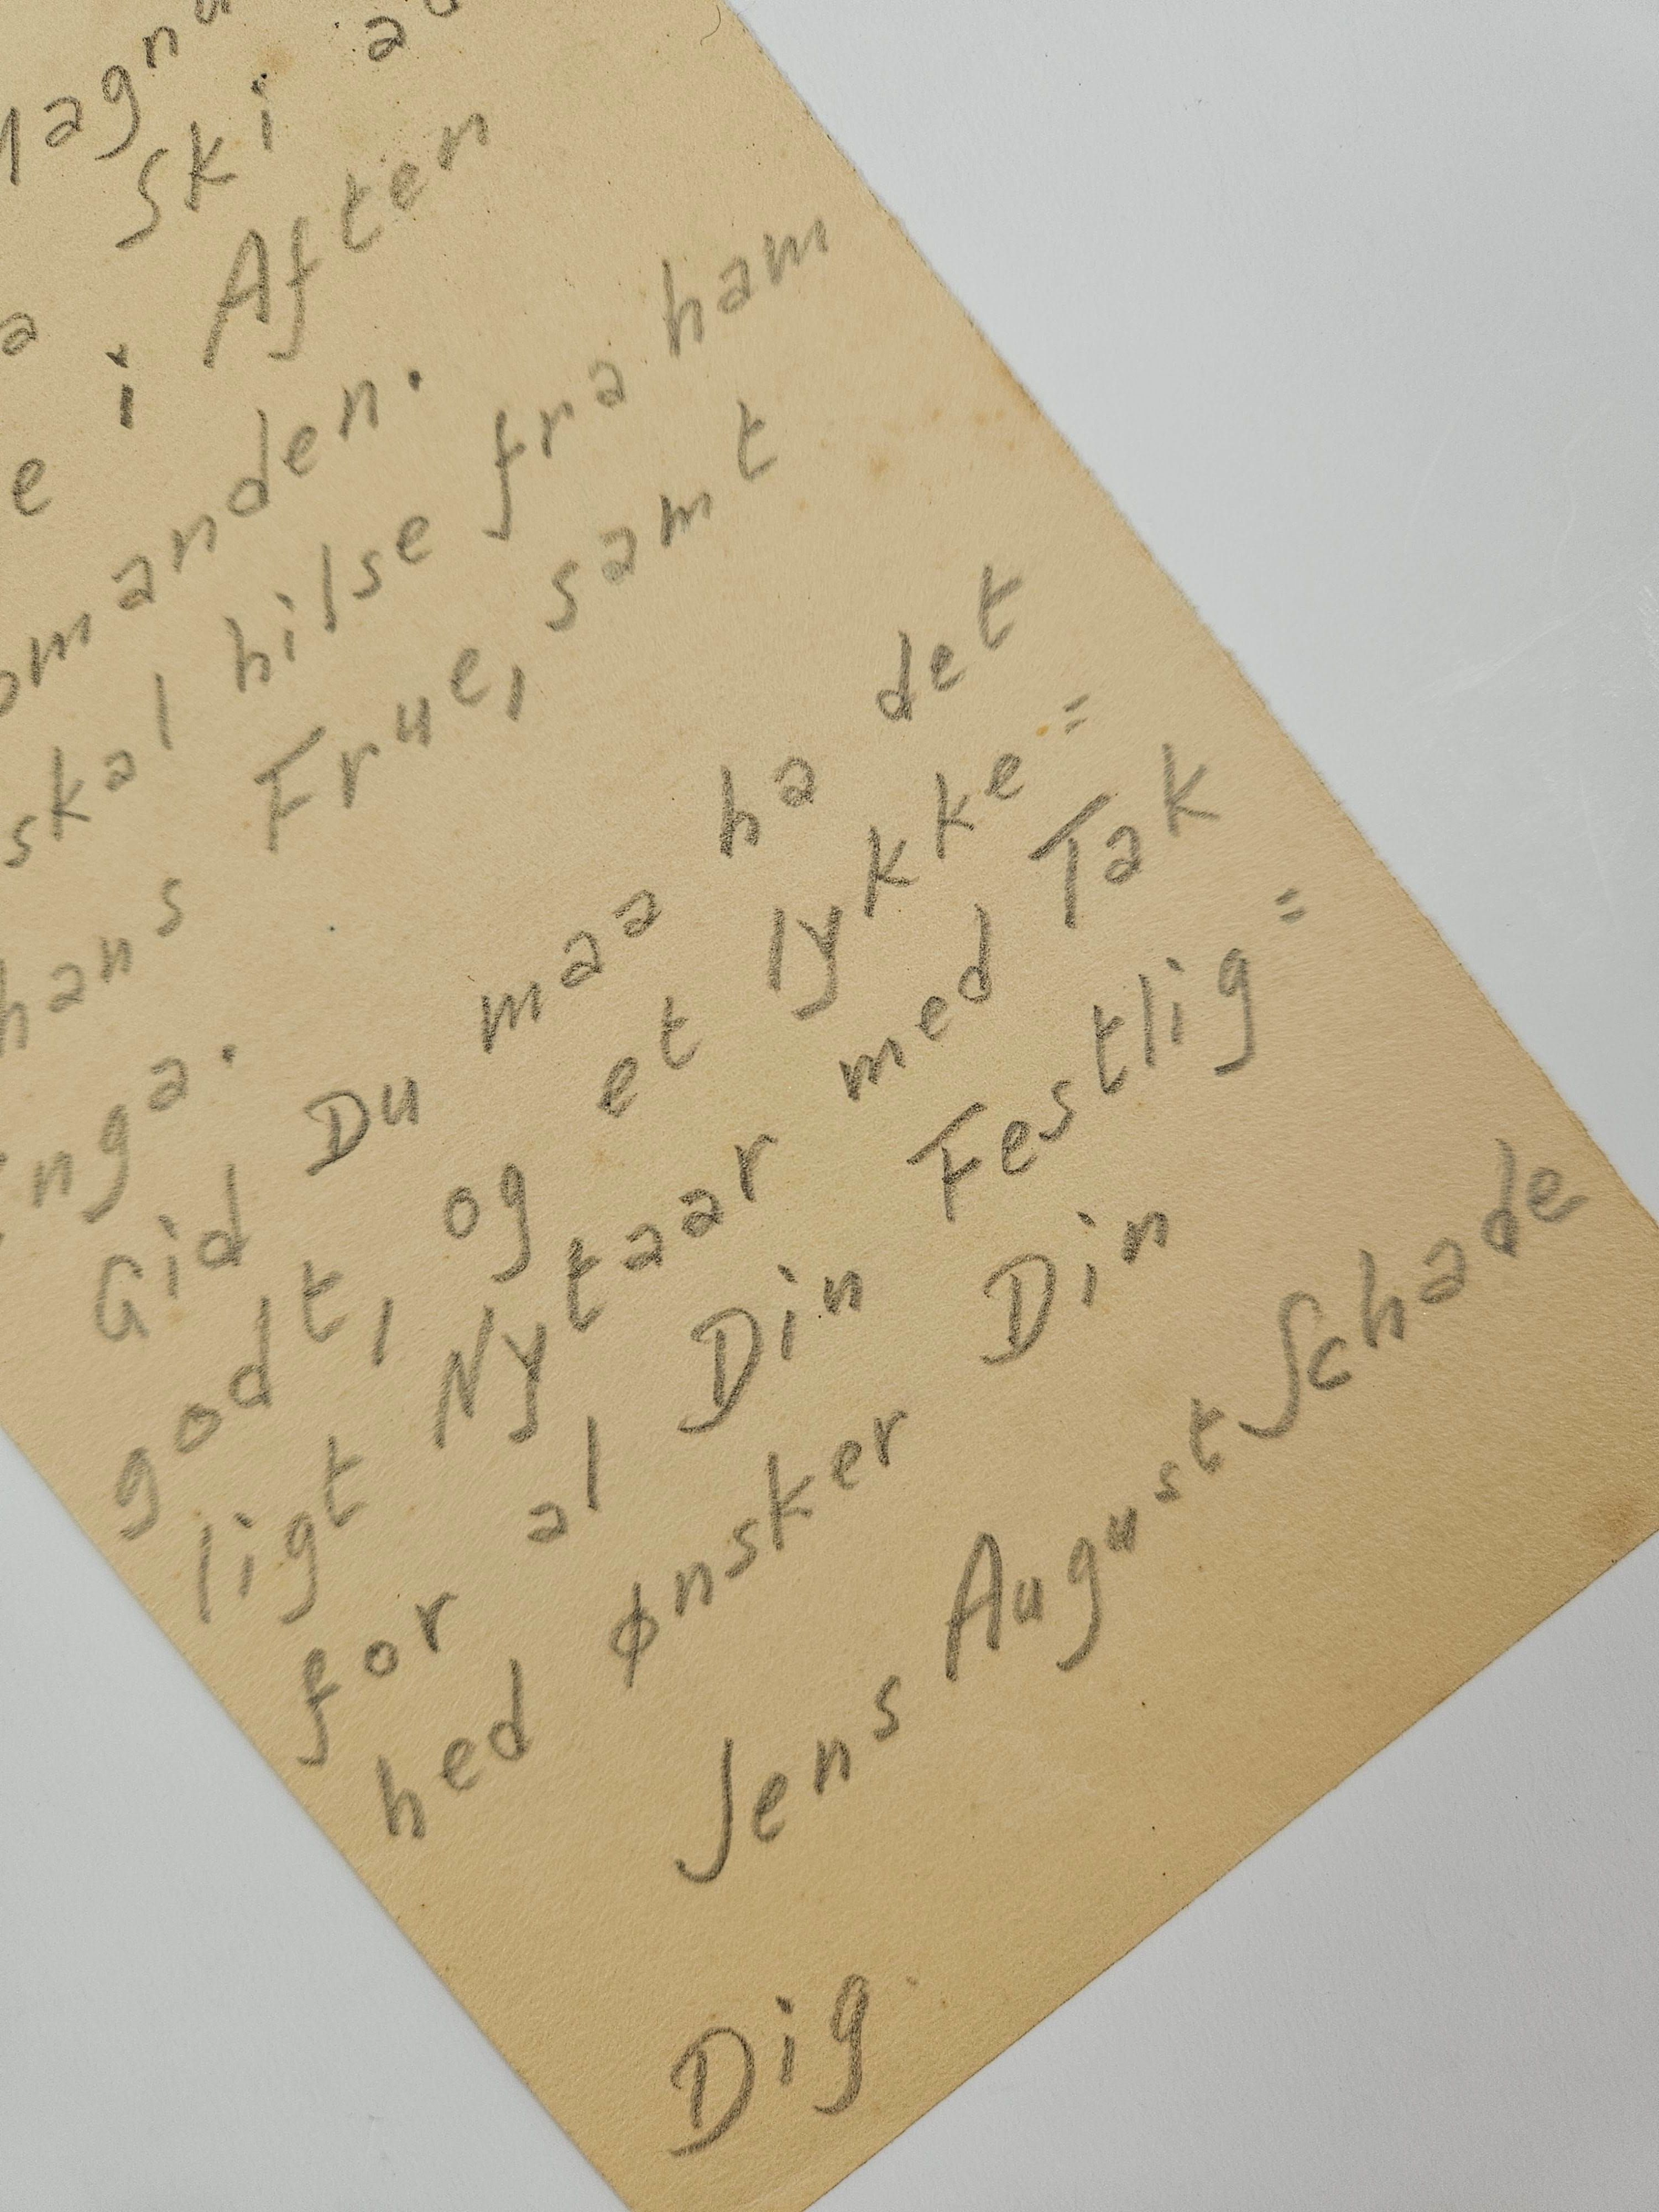 Ski
i Aften
manden.
skal hilse fra ham
hans Frue, samt
nga.
Gid Du maa ha det
godt, og et lykke=
ligt Nytaar med Tak
for al Din Festlig=
hed ønsker Din
Jens August Schade
Dig.